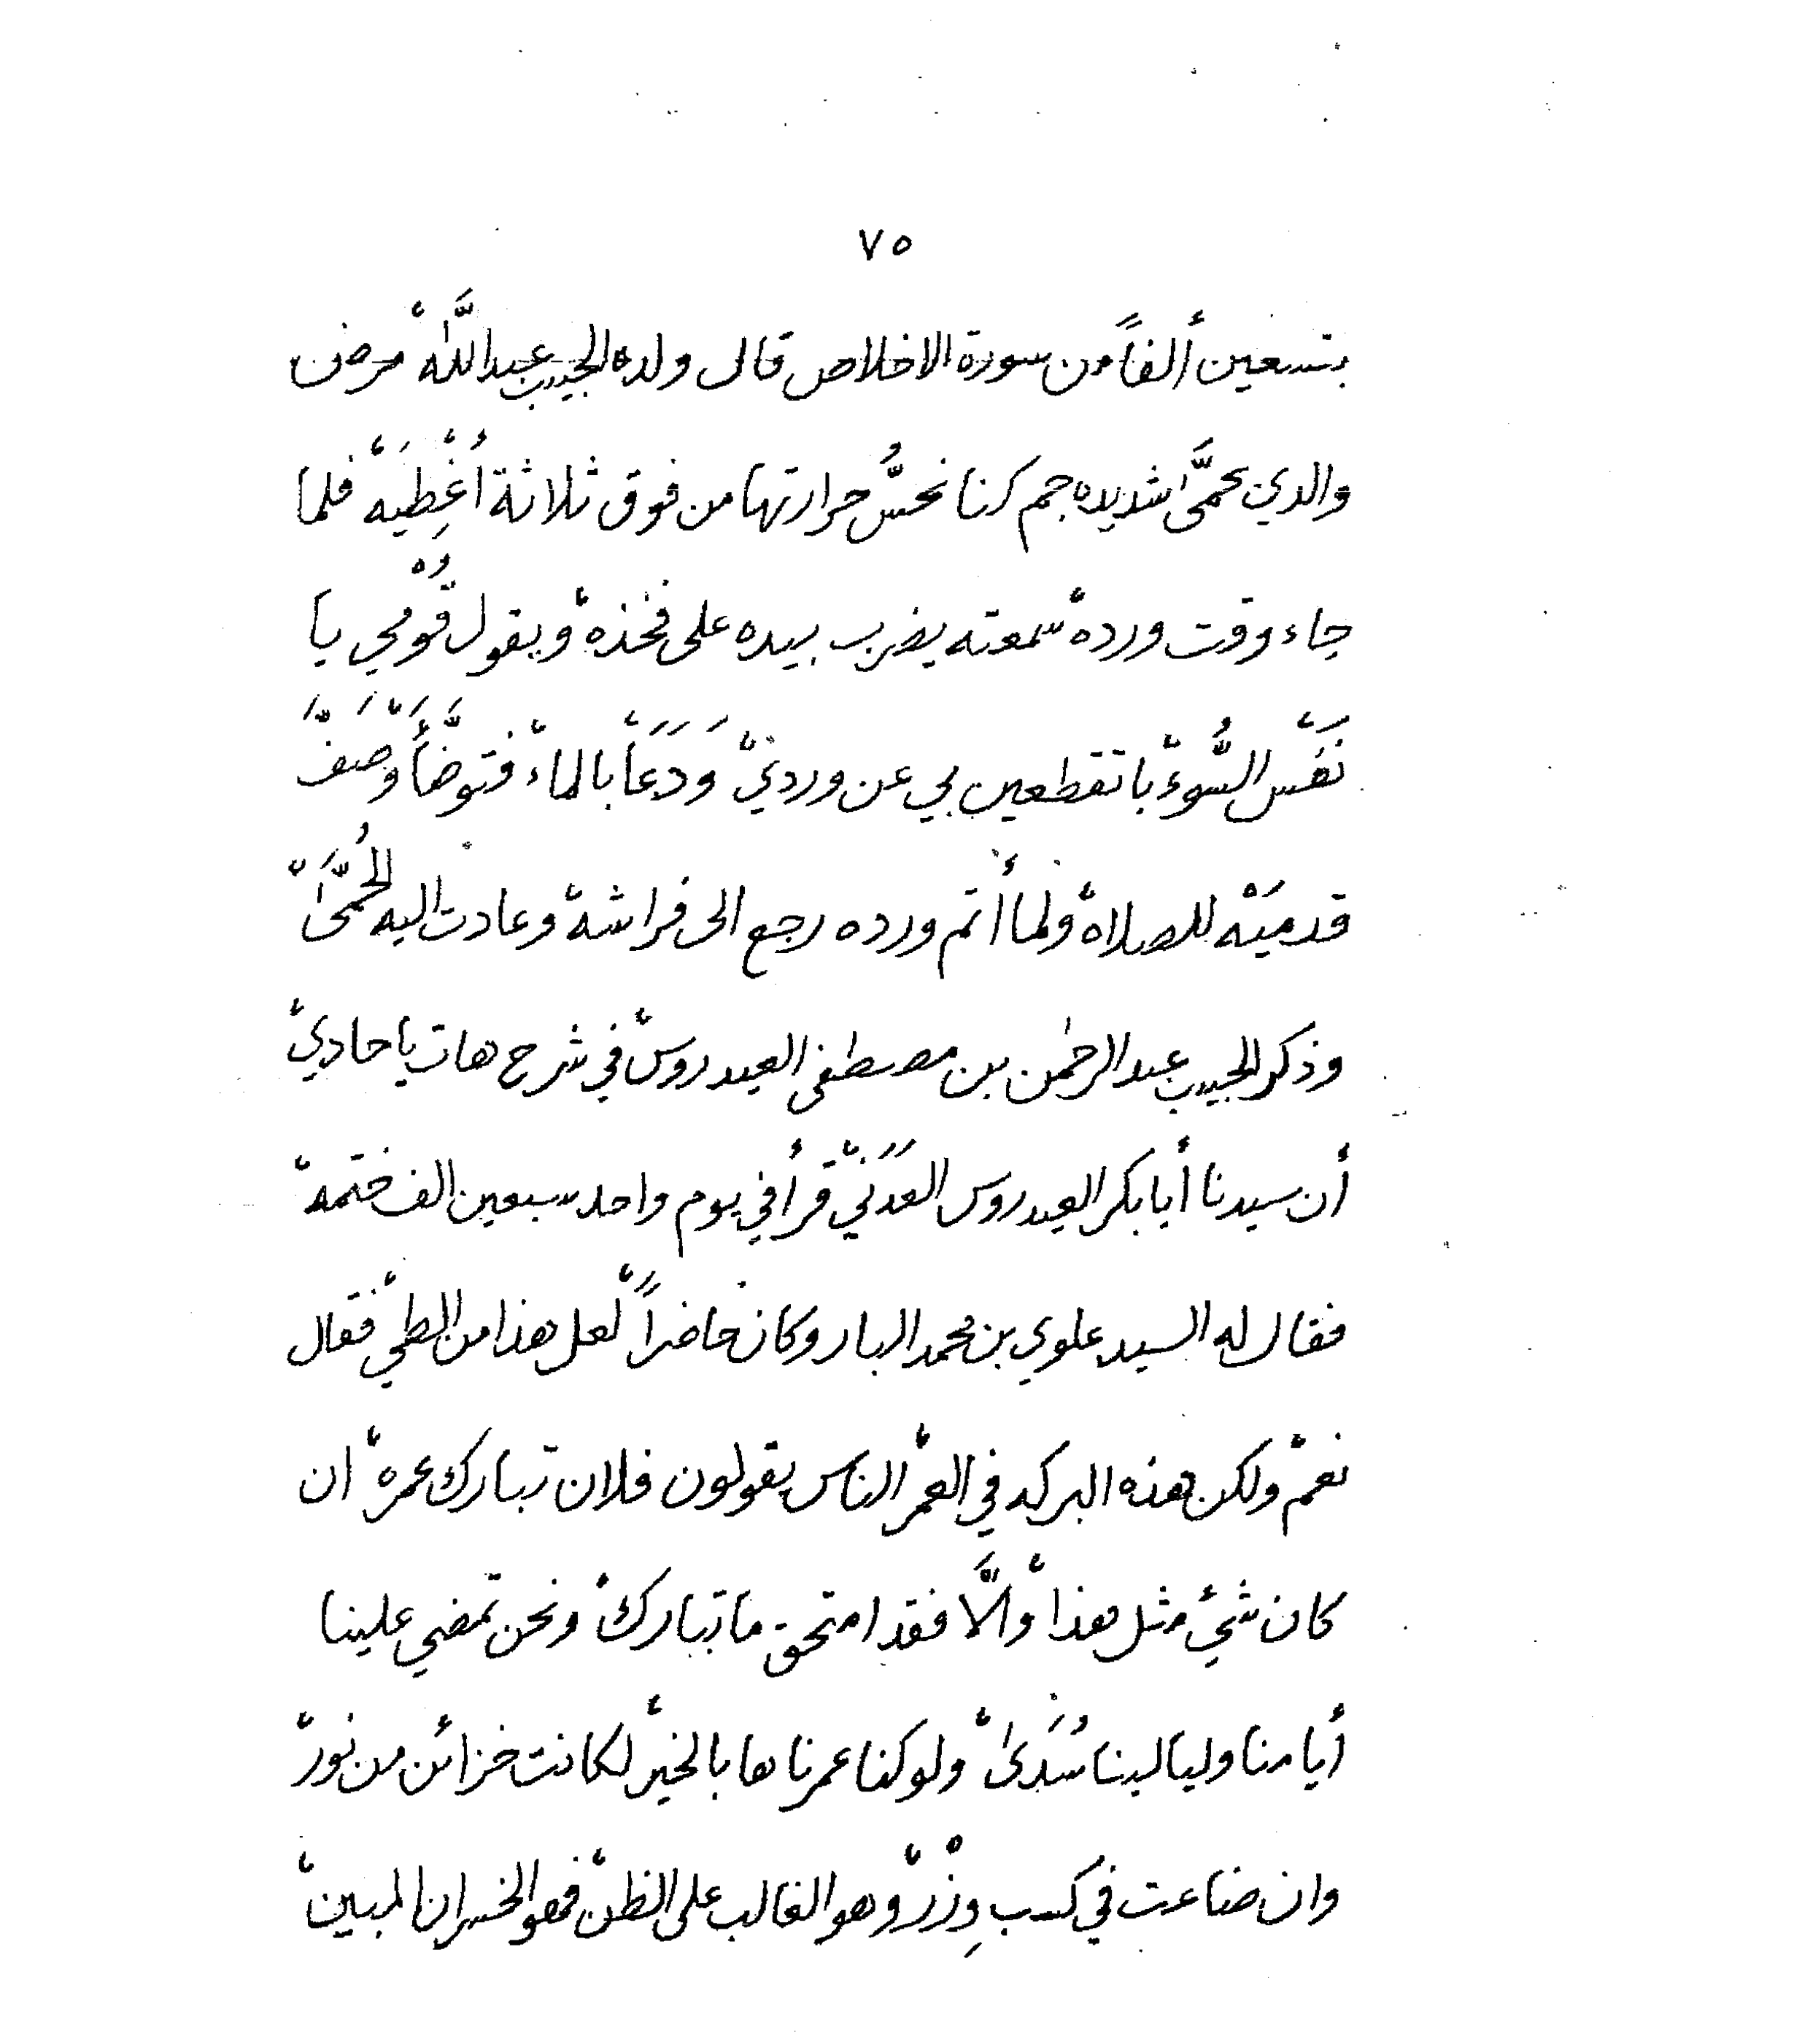 ٧٥
بتسعين ألفاً من سورة الاخلاص قال ولده الحبيب عبدالله مرض
والدي بحمَّى شديده جم كنا نحسُّ حرارتها من فوق ثلاثة أغْطِيَه فلما
جاء وقت ورده سمعته يضرب بيده على فخذه ويقول قُوْمي يا
نَفْس السُّوء باتقطعين بي عن وردي وَدَعَا بالماء فتَوَضَّأَ وَصَفَّ
قدميَه للصلاة ولما أتم ورده رجع الى فراشه وعادت اليه الحُمَّى
وذكر الحبيب عبدالرحمن بن مصطفى العيدروس في شرح هات ياحادي
أن سيدنا أبابكر العيدروس العَدَني قرأ في يوم واحد سبعين الف ختمة
فقال له السيد علوي بن محمد البار وكان حاضراً لعل هذا من الطي فقال
نعم ولكن هذه البركه في العمر الناس يقولون فلان تبارك عمره ان
كان شيْ مثل هذا والَّا فقد امتحق ما تبارك ونحن تمضي علينا
أيامنا وليالينا سُدَى ولو كنا عمرناها بالخير لكانت خزائن من نور
وان ضاعت في كسب وِزْر وهو الغالب على الظن فهو الخسران المبين